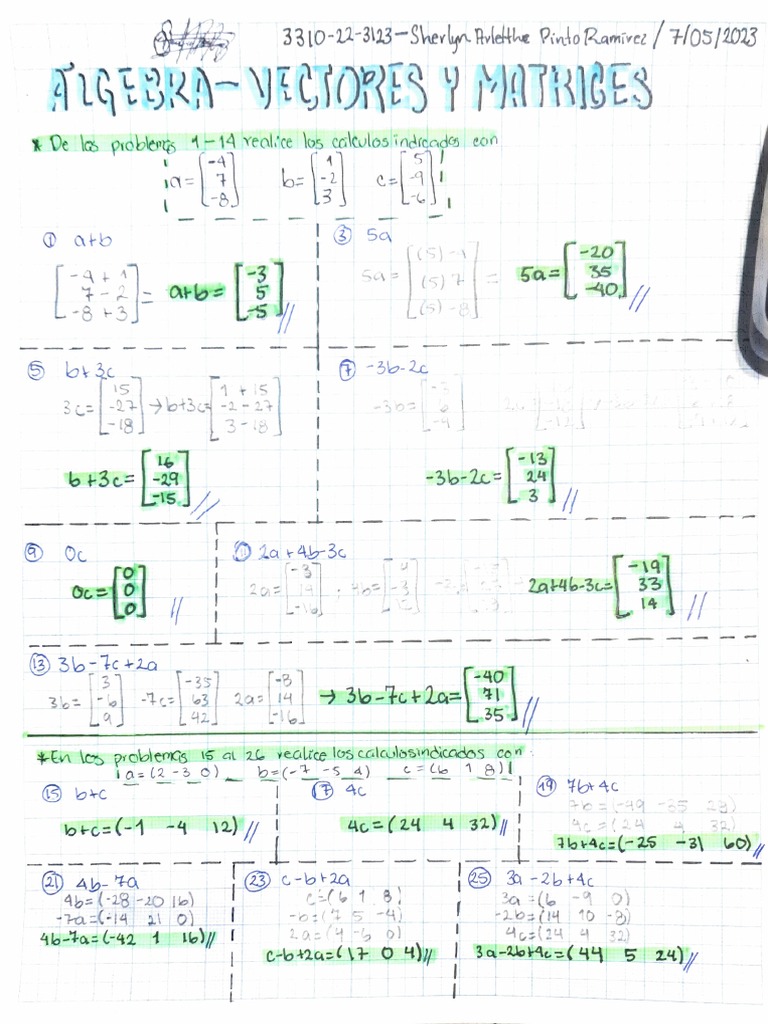 3310-22-3123 - Sherlyn Arletthe Pinto Ramirez / 7/05/2023
ALGEBRA - VECTORES Y MATRICES
* De los problemas 1-14 realice los calculos indicados con
a = [-4 7 -8] b = [1 -2 3] c = [5 -9 -6]
① a+b
[-4 + 1 7 - 2 -8 + 3] = a+b = [-3 5 -5] //
③ 5a
5a = [(5) -4 (5) 7 (5) -8] = 5a = [-20 35 -40] //
⑤ b+3c
3c = [15 -27 -18] → b+3c = [1 + 15 -2 - 27 3 - 18]
b+3c = [16 -29 -15] //
⑦ -3b-2c
-3b =
-3b-2c = [-13 24 3] //
⑨ 0c
0c = [0 0 0] //
⑪ 2a+4b-3c
2a = 4b =
2a+4b-3c = [-19 33 14] //
⑬ 3b-7c+2a
3b = [3 -6 9] -7c = [-35 63 42] 2a = [-8 14 -16] → 3b-7c+2a = [-40 71 35] //
* En los problemas 15 al 26 realice los calculos indicados con:
a = (2 -3 0) b = (-7 -5 4) c = (6 1 8)
⑮ b+c
b+c = (-1 -4 12) //
⑰ 4c
4c = (24 4 32) //
⑲ 7b+4c
7b = (-49 -35 28)
4c = (24 4 32)
7b+4c = (-25 -31 60) //
㉑ 4b-7a
4b = (-28 -20 16)
-7a = (-14 21 0)
4b-7a = (-42 1 16) //
㉓ c-b+2a
c = (6 1 8)
-b = (7 5 -4)
2a = (4 -6 0)
c-b+2a = (17 0 4) //
㉕ 3a-2b+4c
3a = (6 -9 0)
-2b = (14 10 -8)
4c = (24 4 32)
3a-2b+4c = (44 5 24) //